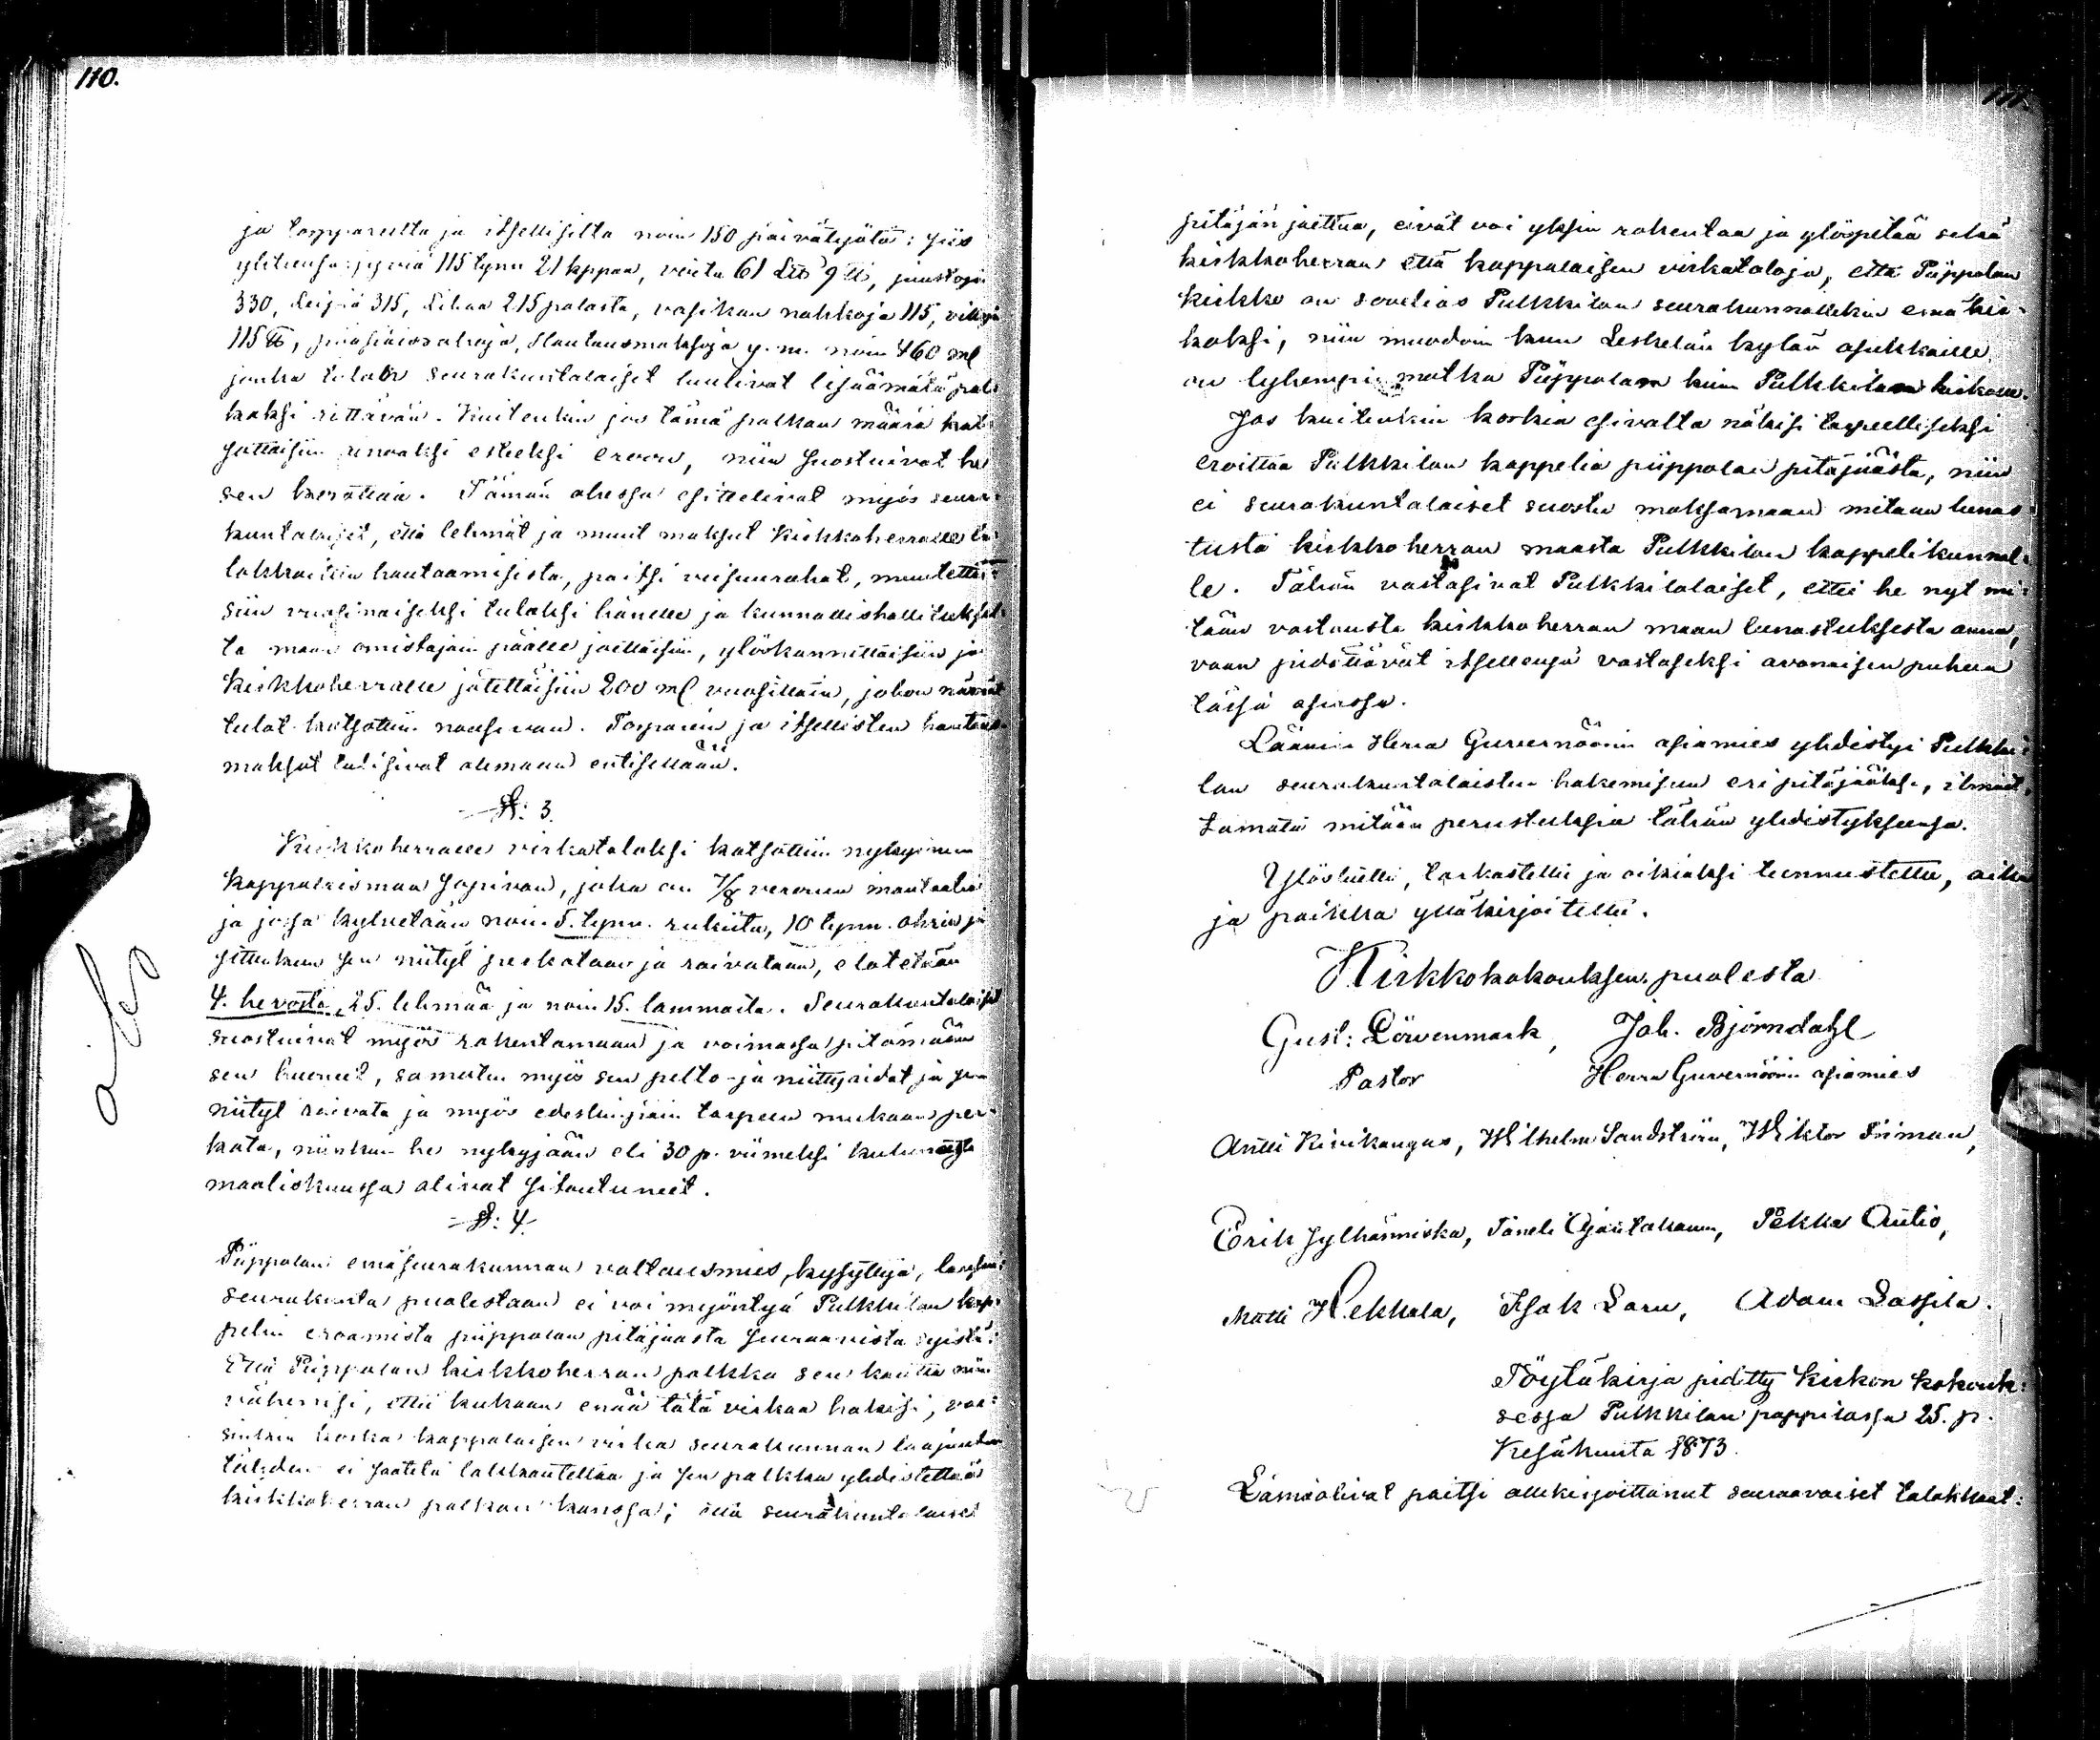 110.
ja torppareilta ja itsellisiltä noin 150 päivätyötä: siis
yhteensä: jyviä 115 tynn 21 kappaa, voita 61 L℔ 9 ℔, juustoja
330, leipiä 315, lihaa 215 palasta, vasikan nahkoja 115, villoja
115 ℔, pääsiäisrahoja, Hautausmaksoja y. m. noin 460 mk
jonka tulon seurakuntalaiset luulivat lisäämätä pal-
kaksi riittävän. Kuitenkin jos tämä palkan määrä kat-
sottaisiin ainoaksi esteeksi eroon, niin suostuivat he
sen
Tämän ohessa esittelivät myös seura-
kuntalaiset, että lehmät ja muut maksut Kirkkoherralle ta-
lokkaitten hautaamisista, paitsi ruisurahat, muutettai-
siin vuosinaiseksi tuloksi hänelle ja kunnallishallituksel-
ta maan omistajain päälle jaettaisiin, ylöskannettaisiin ja
Kirkkoherralle jätettäisiin 200 mk vuosittain, johon nämät
tulot katsottiin nousevan. Torpparein ja itsellisten hautaus
maksut tulisivat olemaan entisellään.
§: 3.
Kirkkoherralle virkataloksi katsottiin nykyinen
Kappalaisman sopivan, joka on 7/8 veroinen mantaalia
ja jossa kylvetään noin 5. tynn. rukiita, 10 tynn. ohria ja
sittenkun sen niityt perkataan ja raivataan, elätetään
4. hevosta, 25. lehmää ja noin 15. lammasta. Seurakuntalaiset
suostuivat myös rakentamaan ja voimassa pitämään
sen huoneet, samoten myös sen pelto- ja niittyaidat ja sen
niityt raivata ja myös edeskinpäin tarpeen mukaan per-
kata, niinkuin he nykyjään eli 30 p. viimeksi kuluneessa
maaliskuussa olivat sitoutuneet.
§: 4.
Piippolan emäseurakunnan valtausmies, kysyttyä, lausui:
seurakunta puolestaan ei voi myöntyä Pulkkilan kap-
pelin eroamista piippolan pitäjäästä seuraavista syistä:
Että Piippolan kirkkoherran palkka sen kautta niin
vähenisi, ettei kukaan enää tätä virkaa hakisi, var-
sinkin koska kappalaisen virka seurakunnan laajuuden
tähden ei saateta lakkauttaa ja sen palkka yhdistettää
kirkkoherran palkan kanssa; että seurakuntalaiset
111.
pitäjän jaettua, eivät voi yksin rakentaa ja ylöspitää sekä
kirkkoherran että kappalaisen virkataloja, että Piippolan
kirkko on sovelias Pulkkilan seurakunnallekin emäkir-
koksi, niin muodoin kuin Leskelän kylän asukkaille
on lyhempi matka Piippolan kuin Pulkkilan kirkolle.
Jos kuitenkin korkia esivalta näkisi tarpeelliseksi
eroittaa Pulkkilan kappelia piippolan pitäjäästä, niin
ei seurakuntalaiset suostu maksamaan mitään lunas-
tusta kirkkoherran maasta Pulkkilan kappelikunnal-
le. Tähän vastasivat Pulkkilalaiset, ettei he nyt mi-
tään vastausta kirkkoherran maan lunastuksesta anna,
vaan pidättävät itsellensä vastaseksi avonaisen puheen
tässä asiassa.
Läänin Herra Guvernöörin asiamies yhdistyi Pulkki-
lan seurakuntalaisten hakemiseen eri pitäjääksi, ilmoit-
tamata mitään perustuksia tähän yhdistykseensä.
Ylösluettu, tarkastettu ja oikiaksi tunnustettu, aika
ja paikka ylläkirjoitettu.
Kirkkokokouksen puolesta
Gust: Löwenmark, Joh. Björndahl
Pastor Herra Guvernöörin asiamies
Antti Kivikangas, Wilhelm Sandström, Wiktor Friman,
Erik Jylhänniska, Taneli Ojantakanen, Pekka Autio,
Matti Wekkala, Isak Laru, Adam Lassila.
Pöytäkirja pidetty kirkon kokouk-
sessa Pulkkilan pappilassa 25. p.
Kesäkuuta 1873.
Läsnäolivat paitsi allekirjoittanut seuraavaiset talokkaat: